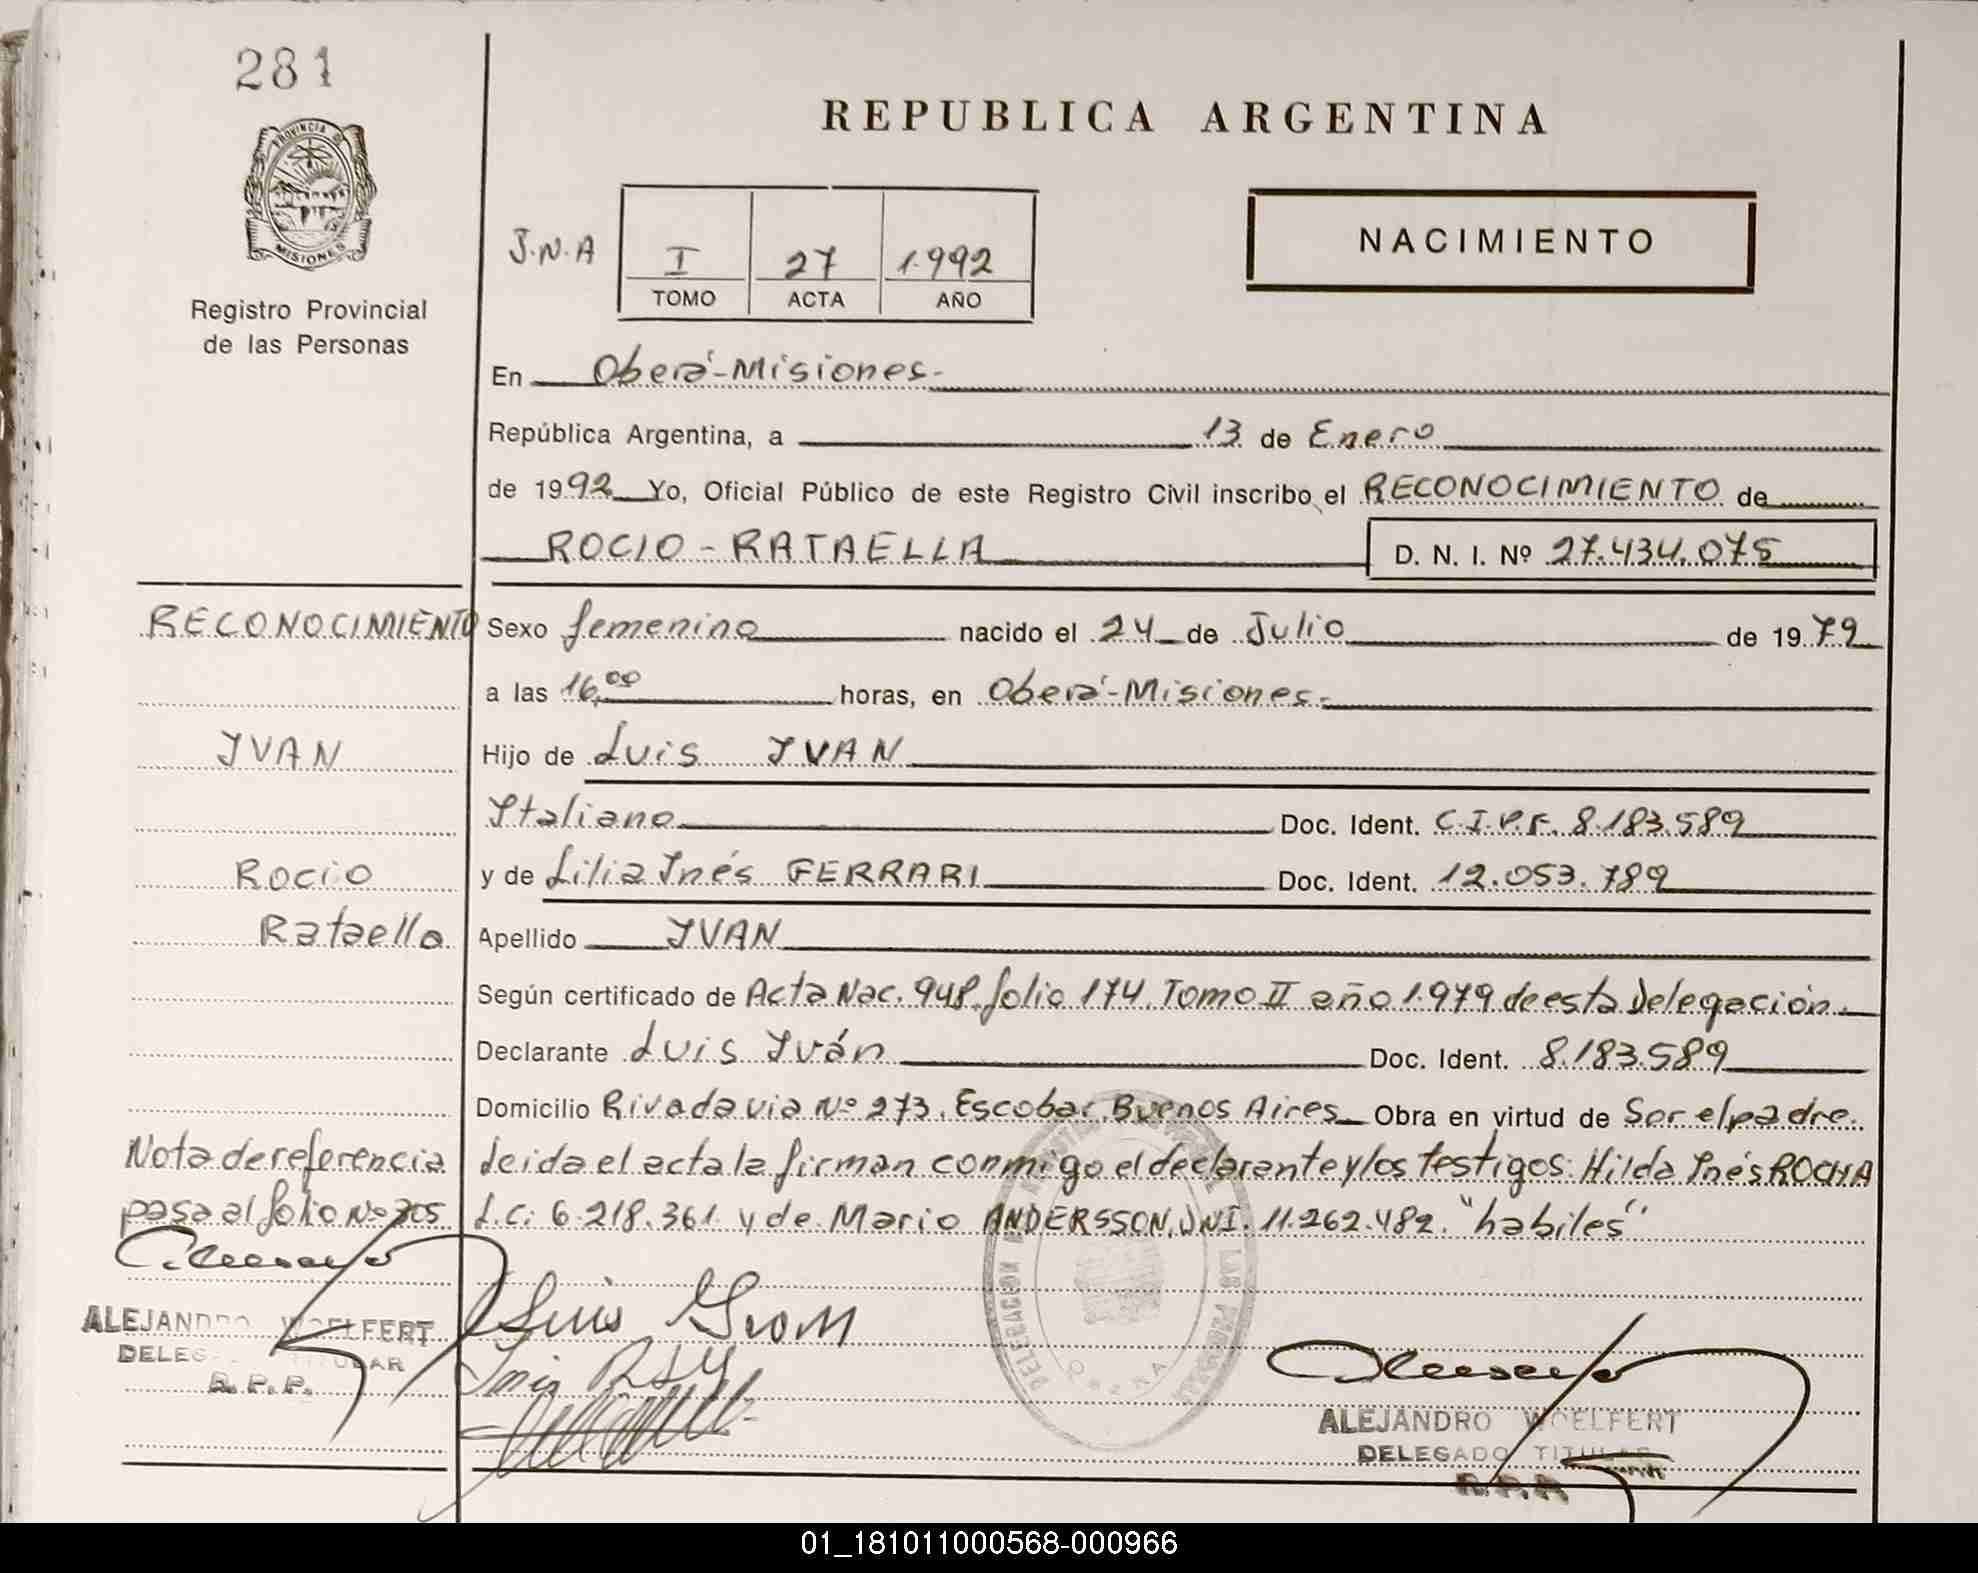 281
REPUBLICA ARGENTINA
PROVINCIA DE
MISIONES
J.N.A
I
27
1.992
TOMO
ACTA
AÑO
NACIMIENTO
Registro Provincial
de las Personas
En Oberá-Misiones.
República Argentina, a 13 de Enero
de 1992 Yo, Oficial Público de este Registro Civil inscribo el RECONOCIMIENTO de
ROCIO - RATAELLA
D. N. I. Nº 27.434.075
RECONOCIMIENTO
Sexo femenino nacido el 24 de Julio de 1979
a las 16,00 horas, en Oberá-Misiones.
YVAN
Hijo de Luis YVAN
Ytaliano Doc. Ident. C.I.P.F. 8.183.589
Rocio
y de Lilia Ynés FERRARI Doc. Ident. 12.053.789
Rataella
Apellido YVAN
Según certificado de Acta Nac. 948. folio 174. Tomo II año 1.979 de esta Delegación.
Declarante Luis Yván Doc. Ident. 8.183.589
Domicilio Rivadavia Nº 273. Escobar, Buenos Aires Obra en virtud de Ser el padre.
Nota de referencia
pasa al folio Nº 305
Leida el acta la firman conmigo el declarante y los testigos: Hilda Ynés ROCHA
L.C. 6.218.361. y de Mario ANDERSSON, DNI. 11.262.482. "habiles"
ALEJANDRO WOELFERT
DELEGADO TITULAR
R.P.P.
Luis
DELEGACION
OBERA
LAS PERSONAS
ALEJANDRO WOELFERT
DELEGADO TITULAR
01_181011000568-000966